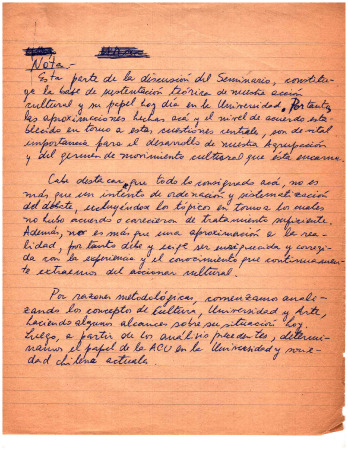 Nota.-
Esta parte de la discusión del Seminario, constitu-
ye la base de sustentación teórica de nuestra acción
cultural y su papel hoy día en la Universidad. Por tanto,
las aproximaciones hechas acá y el nivel de acuerdo esta-
blecido en torno a estas cuestiones centrales, son de vital
importancia para el desarrollo de nuestra Agrupación
y del germen de movimiento cultural que ésta encarna.
Cabe destacar, que todo lo consignado acá, no es
más que un intento de ordenación y sistematización
del debate, incluyéndose los tópicos en torno a los cuales
no hubo acuerdo o carecieron de tratamiento suficiente.
Además, no es más que una aproximación a la rea-
lidad, por tanto debe y exige ser enriquecida y corregi-
da con la experiencia y el conocimiento que continuamen-
te extraemos del accionar cultural.
Por razones metodológicas, comenzamos anali-
zando los conceptos de Cultura, Universidad y Arte,
haciendo algunos alcances sobre su situación hoy.
Luego, a partir de los análisis precedentes, determi-
namos el papel de la ACU en la Universidad y socie-
dad chilena actuales.